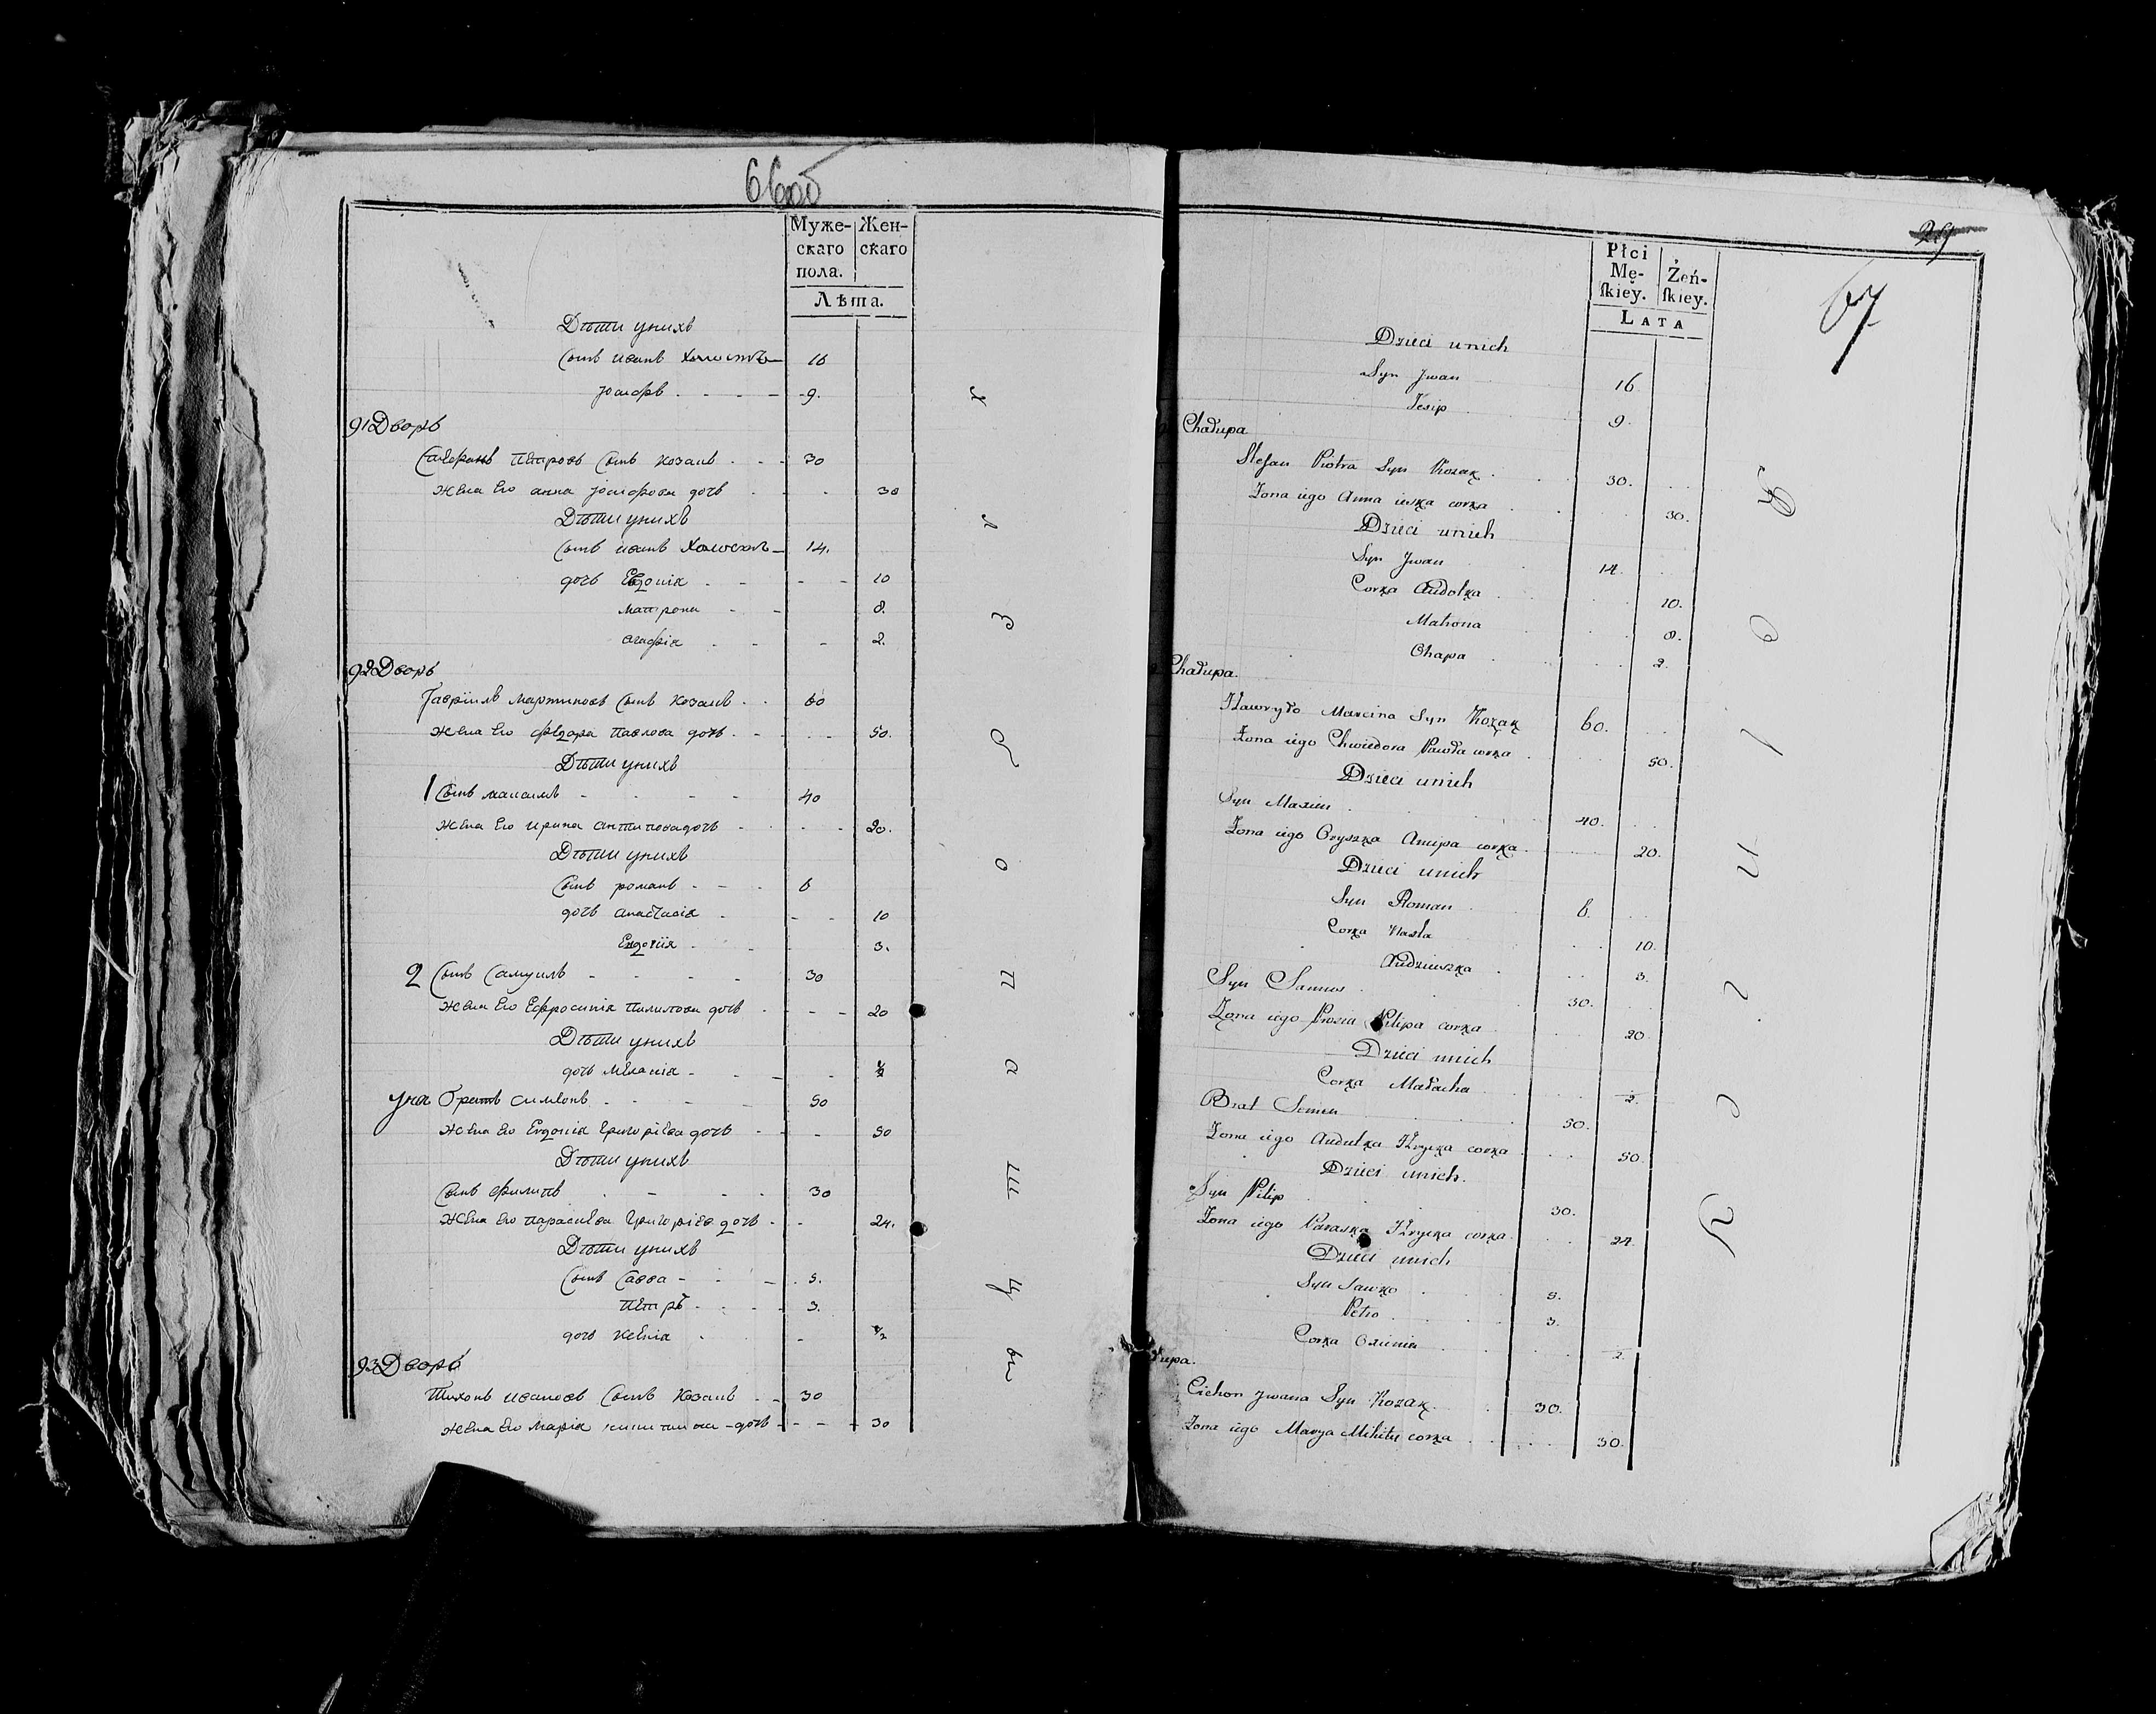 66об
Муже-
скаго
пола.
Жен-
скаго
Лѣта.
Дѣти унихъ
Сынъ иванъ Холостъ 16
Іосифъ 9.
91 Дворъ
Стефанъ Петровъ Сынъ Козакъ 30
жена Его анна Іосифова дочь 30
Дѣти унихъ
Сынъ иванъ Холостъ 14.
дочь Евдокіа 10
матрона 8.
агафіа 2.
92 Дворъ
Гавріилъ Мартиновъ Сынъ Козакъ 60
жена Его федора павлова дочь 50.
Дѣти унихъ
1 Сынъ максимъ 40
жена Его ирина антипова дочь 20.
Дѣти унихъ
Сынъ романъ 6
дочь анастасіа 10
Евдокіа 3.
2 Сынъ Самуилъ 30
жена Его Ефросиніа пилипова дочь 20
Дѣти унихъ
дочь меланіа ½
уна братъ симеонъ 50
жена Его Евдокіа григоріева дочь 50
Дѣти унихъ
Сынъ филипъ 30
жена Его параскева григоріева дочь 24.
Дѣти унихъ
Сынъ Савва 5.
петръ 3.
дочь ксеніа ½
93 Дворъ
Тихонъ ивановъ Сынъ Козакъ 30
жена Его маріа дочь 30
29
67
Płci
Mę-
ſkiey.
Żeń-
ſkiey.
LATA
Dzieci unich
Syn Jwan 16.
Jesip 9.
Chałupa
Stefan Piotra Syn Kozak 30.
Zona iego Anna corka 30.
Dzieci unich
Syn Jwan 14.
Corka Audotka 10.
Matrona 8.
Ohapa 2.
Chałupa.
Hawryło Marcina Syn Kozak 60.
Zona iego Chwiedora Pawła corka 50.
Dzieci unich
Syn Maxim 40.
Zona iego Oryszka Ancipa corka 20.
Dzieci unich
Syn Roman 6.
Corka Nasta 10.
3.
Syn Samus 30.
Zona iego Prosia Pilipa corka 20
Dzieci unich
Corka Małacha 2.
Brat Semen 50.
Zona iego Audutka Hryćka corka 50
Dzieci unich.
Syn Pilip 30.
Zona iego Paraska Hryćka corka 24.
Dzieci unich
Syn Sawko 5.
Petro 3.
Corka Oxienia 2.
upa.
Cichon Jwana Syn Kozak 30.
Zona iego Marya Mikity corka 30.